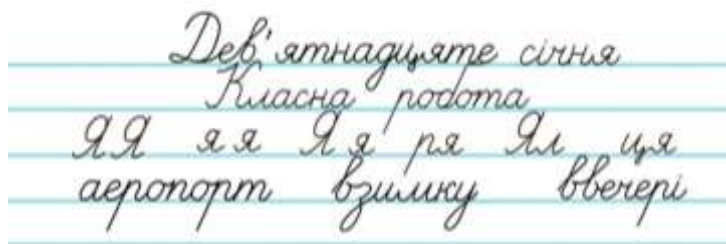 Дев'ятнадцяте січня
Класна робота
ЯЯ яя Яя ря Ял ця
аеропорт взимку ввечері